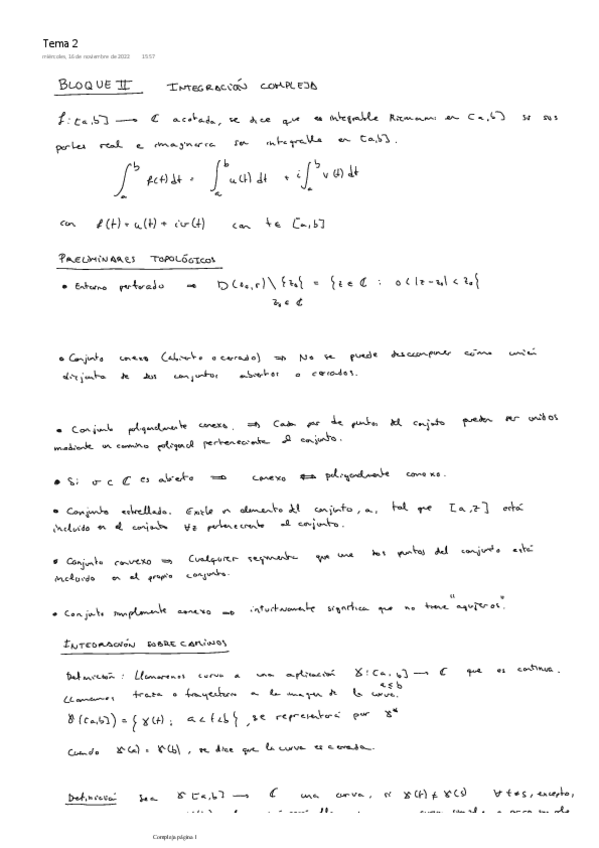 Tema 2
miércoles, 16 de noviembre de 2022 15:57
BLOQUE II INTEGRACIÓN COMPLEJA
f: [a,b] → ℂ acotada, se dice que es integrable Riemann en [a,b] si sus
partes real e imaginaria son integrables en [a,b].
∫_a^b f(t)dt = ∫_a^b u(t) dt + i∫_a^b v(t) dt
con f(t) = u(t) + iv(t) con t ∈ [a,b]
PRELIMINARES TOPOLÓGICOS
• Entorno perforado ⇒ D(z₀,r) \ {z₀} = {z ∈ ℂ : 0 < |z-z₀| < z₀}
z₀ ∈ ℂ
• Conjunto conexo (abierto o cerrado) ⇒ No se puede descomponer como unión
disjunta de dos conjuntos abiertos o cerrados.
• Conjunto poligonalmente conexo. ⇒ Cada par de puntos del conjunto pueden ser unidos
mediante un camino poligonal perteneciente al conjunto.
• Si σ ⊂ ℂ es abierto ⇒ conexo ⇔ poligonalmente conexo.
• Conjunto estrellado. Existe un elemento del conjunto, a, tal que [a,z] está
incluido en el conjunto ∀z perteneciente al conjunto.
• Conjunto convexo ⇒ Cualquier segmento que une dos puntos del conjunto está
incluido en el propio conjunto.
• Conjunto simplemente conexo ⇒ intuitivamente significa que no tiene "agujeros".
INTEGRACIÓN SOBRE CAMINOS
Definición: Llamaremos curva a una aplicación γ: [a,b] → ℂ que es continua.
a≤b
Llamamos traza o trayectoria a la imagen de la curva.
γ([a,b]) = {γ(t); a<t<b}, se representará por γ*
Cuando γ(a) = γ(b), se dice que la curva es cerrada.
Definición Sea γ [a,b] → ℂ una curva, si γ(t) ≠ γ(s) ∀ t≠s, excepto,
Compleja página 1